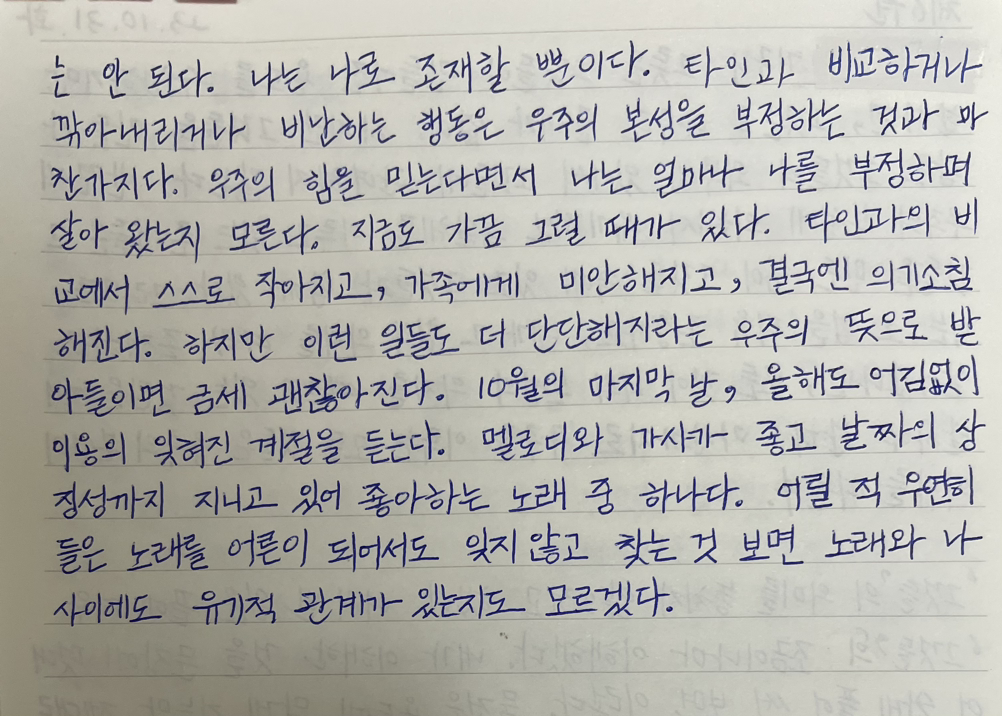 는 안 된다. 나는 나로 존재할 뿐이다. 타인과 비교하거나
깎아내리거나 비난하는 행동은 우주의 본성을 부정하는 것과 마
찬가지다. 우주의 힘을 믿는다면서 나는 얼마나 나를 부정하며
살아 왔는지 모른다. 지금도 가끔 그럴 때가 있다. 타인과의 비
교에서 스스로 작아지고, 가족에게 미안해지고, 결국엔 의기소침
해진다. 하지만 이런 일들도 더 단단해지라는 우주의 뜻으로 받
아들이면 금세 괜찮아진다. 10월의 마지막 날, 올해도 어김없이
이용의 잊혀진 계절을 듣는다. 멜로디와 가사가 좋고 날짜의 상
징성까지 지니고 있어 좋아하는 노래 중 하나다. 어릴 적 우연히
들은 노래를 어른이 되어서도 잊지 않고 찾는 것 보면 노래와 나
사이에도 유기적 관계가 있는지도 모르겠다.